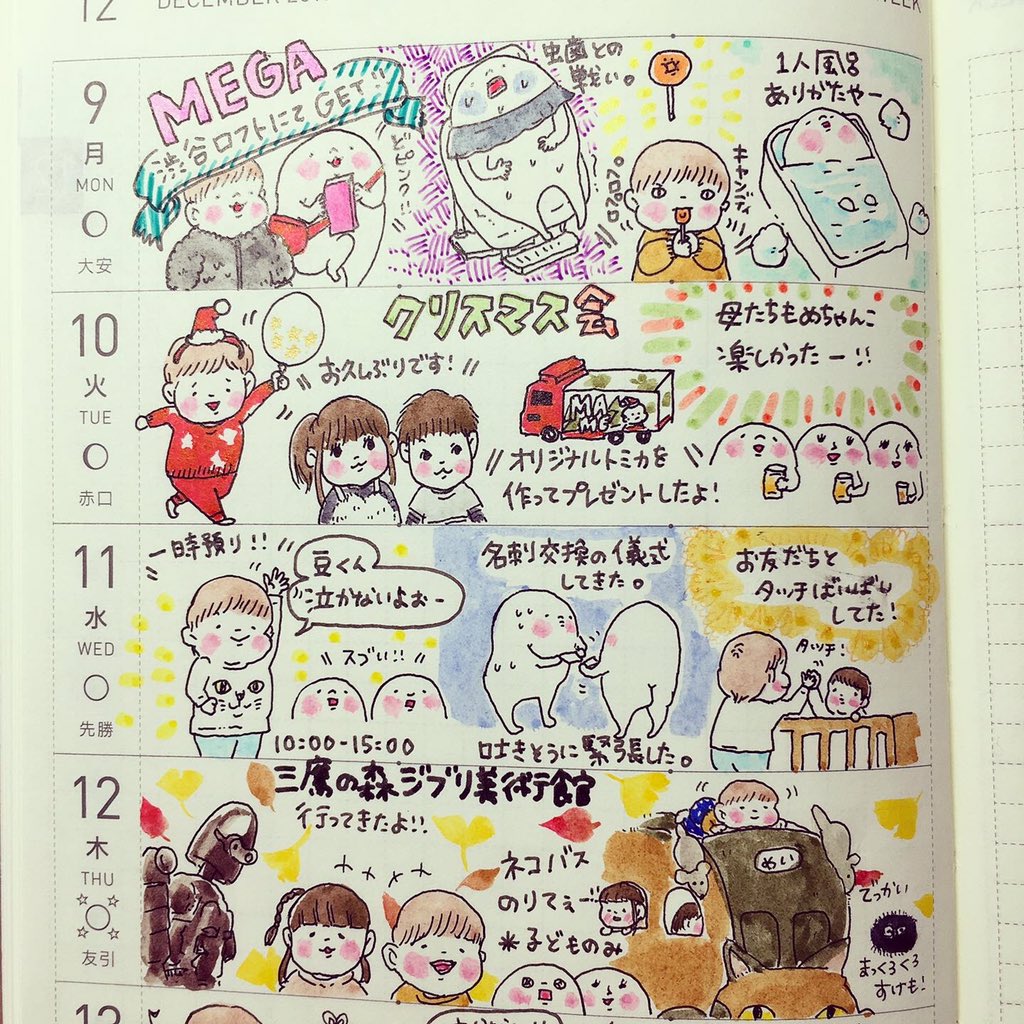 12
DECEMBER
WEEK
9
月
MON
大安
MEGA
渋谷ロフトにてGET
どピンク!!
虫歯との
戦い。
ペロペロ。
キャンディ
1人風呂
ありがたやー
10
火
TUE
赤口
クリスマス会
お久しぶりです!
オリジナルトミカを
作ってプレゼントしたよ!
母たちもめちゃんこ
楽しかったー!!
11
水
WED
先勝
一時預り!!
豆くん
泣かないよおー
スづい!!
10:00-15:00
名刺交換の儀式
してきた。
吐きそうに緊張した。
お友だちと
タッチばんばん
してた!
タッチ!
12
木
THU
友引
三鷹の森ジブリ美術館
行ってきたよ!!
ネコバス
のりてぇ…
*子どものみ
めい
でっかい
まっくろくろ
すけも!
12